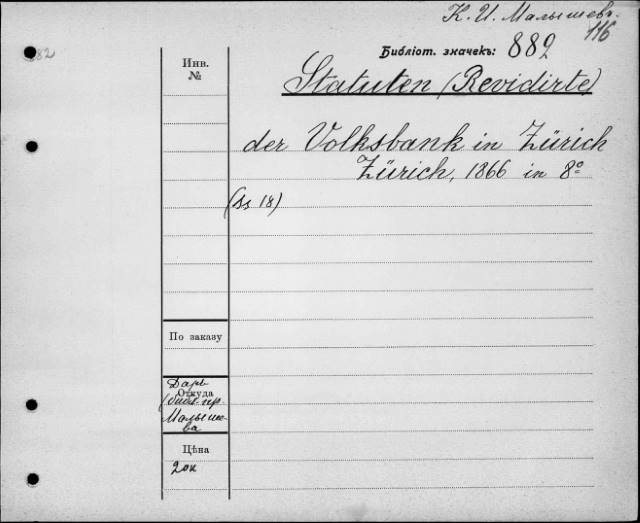 К. И. Малышевъ.
116
882
Библіот. значекъ: 882
Инв.
№
Statuten (Revidirte)
der Volksbank in Zürich
Zürich, 1866 in 8º
(Ss 18)
По заказу
Даръ
Откуда
Малыше-
ва
Цѣна
20к